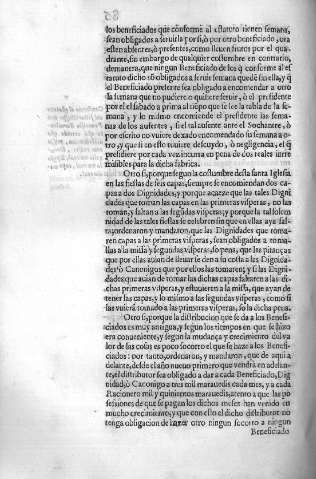 los beneficiados que conforme al estatuto tienen semana,
sean obligados a seruirla por si, o por otro Beneficiado, ora
esten absentes, o presentes, como lleuen frutos por el qua-
drante, sin embargo de qualquier costumbre en contrario,
demanera, que ningun Beneficiado de los q̃ conforme al es-
tatuto dicho sõ obligados a seruir semana quede sin ella, y q̃
el Beneficiado presente sea obligado a encomendar a otro
la semana que no pudiere o quisiere seruir, o el presidente
por el el sabado a prima al tiẽpo que se lee la tabla de la se-
mana, y lo mismo encomiende el presidente las sema-
nas de los ausentes, i el tal ausente ante el Sochantre,
por el dicho no vuiere dexado encomendada su semana a o-
tro, y que si en esto vuiere descuydo, o negligencia, el q̃
presidiere por cada vez incurra en pena de dos reales irre
missibles para la dicha fabrica.
Otro si, porque segun la costumbre desta santa Iglesia
en las fiestas de seis capas, siempre se encomiendan dos ca-
pas a dos Dignidades, y porque acaeze que las tales Digni
dades que toman las capas en las primeras visperas, no las
toman, y faltan a las segundas visperas, y porque la tal solem-
nidad de las tales fiestas no es razon sin que en ellas aya fal-
tas, ordenaron y mandaron, que las Dignidades que toma-
ren capas a las primeras visperas, sean obligados a tomar-
las a la missa y segundas visperas, so pena, que las pitanças
que por ellas auian de lleuar se den a su costa a las Dignida-
des, o Canonigos que por ellos las tomaren, y si las Digni-
dades, que auian de tomar las dichas capas faltaren a las di-
chas primeras visperas, y estuuieren a la missa, que ayan de
tener las capas, y lo mismo a las segundas visperas, como si
las vuiera tomado a las primeras visperas, so la dicha pena.
Otro si, porque la distribucion que se da a los Benefi-
ciados es muy antigua, y segun los tiempos en que se hizo
era conueniente, y segun la mudança y crecimiento del va-
lor de las cosas es poco socorro el que se haze a los Benefi-
ciados: por tanto, ordenaron, y mandaron, que de aqui a
delante, desde el año nueuo primero que vendra en adelan-
te, el distribuidor sea obligado a dar a cada Beneficiado, Dig
nidad, o Canonigo a tres mil marauedis cada mes, y a cada
Racionero mil y quinientos marauedis, atento a que las po
sessiones de que se pagan los dichos meses han venido en
mucho crecimiento, y que con esto el dicho distribuidor no
tenga obligacion de hazer otro ningun socorro a ningun
Beneficiado